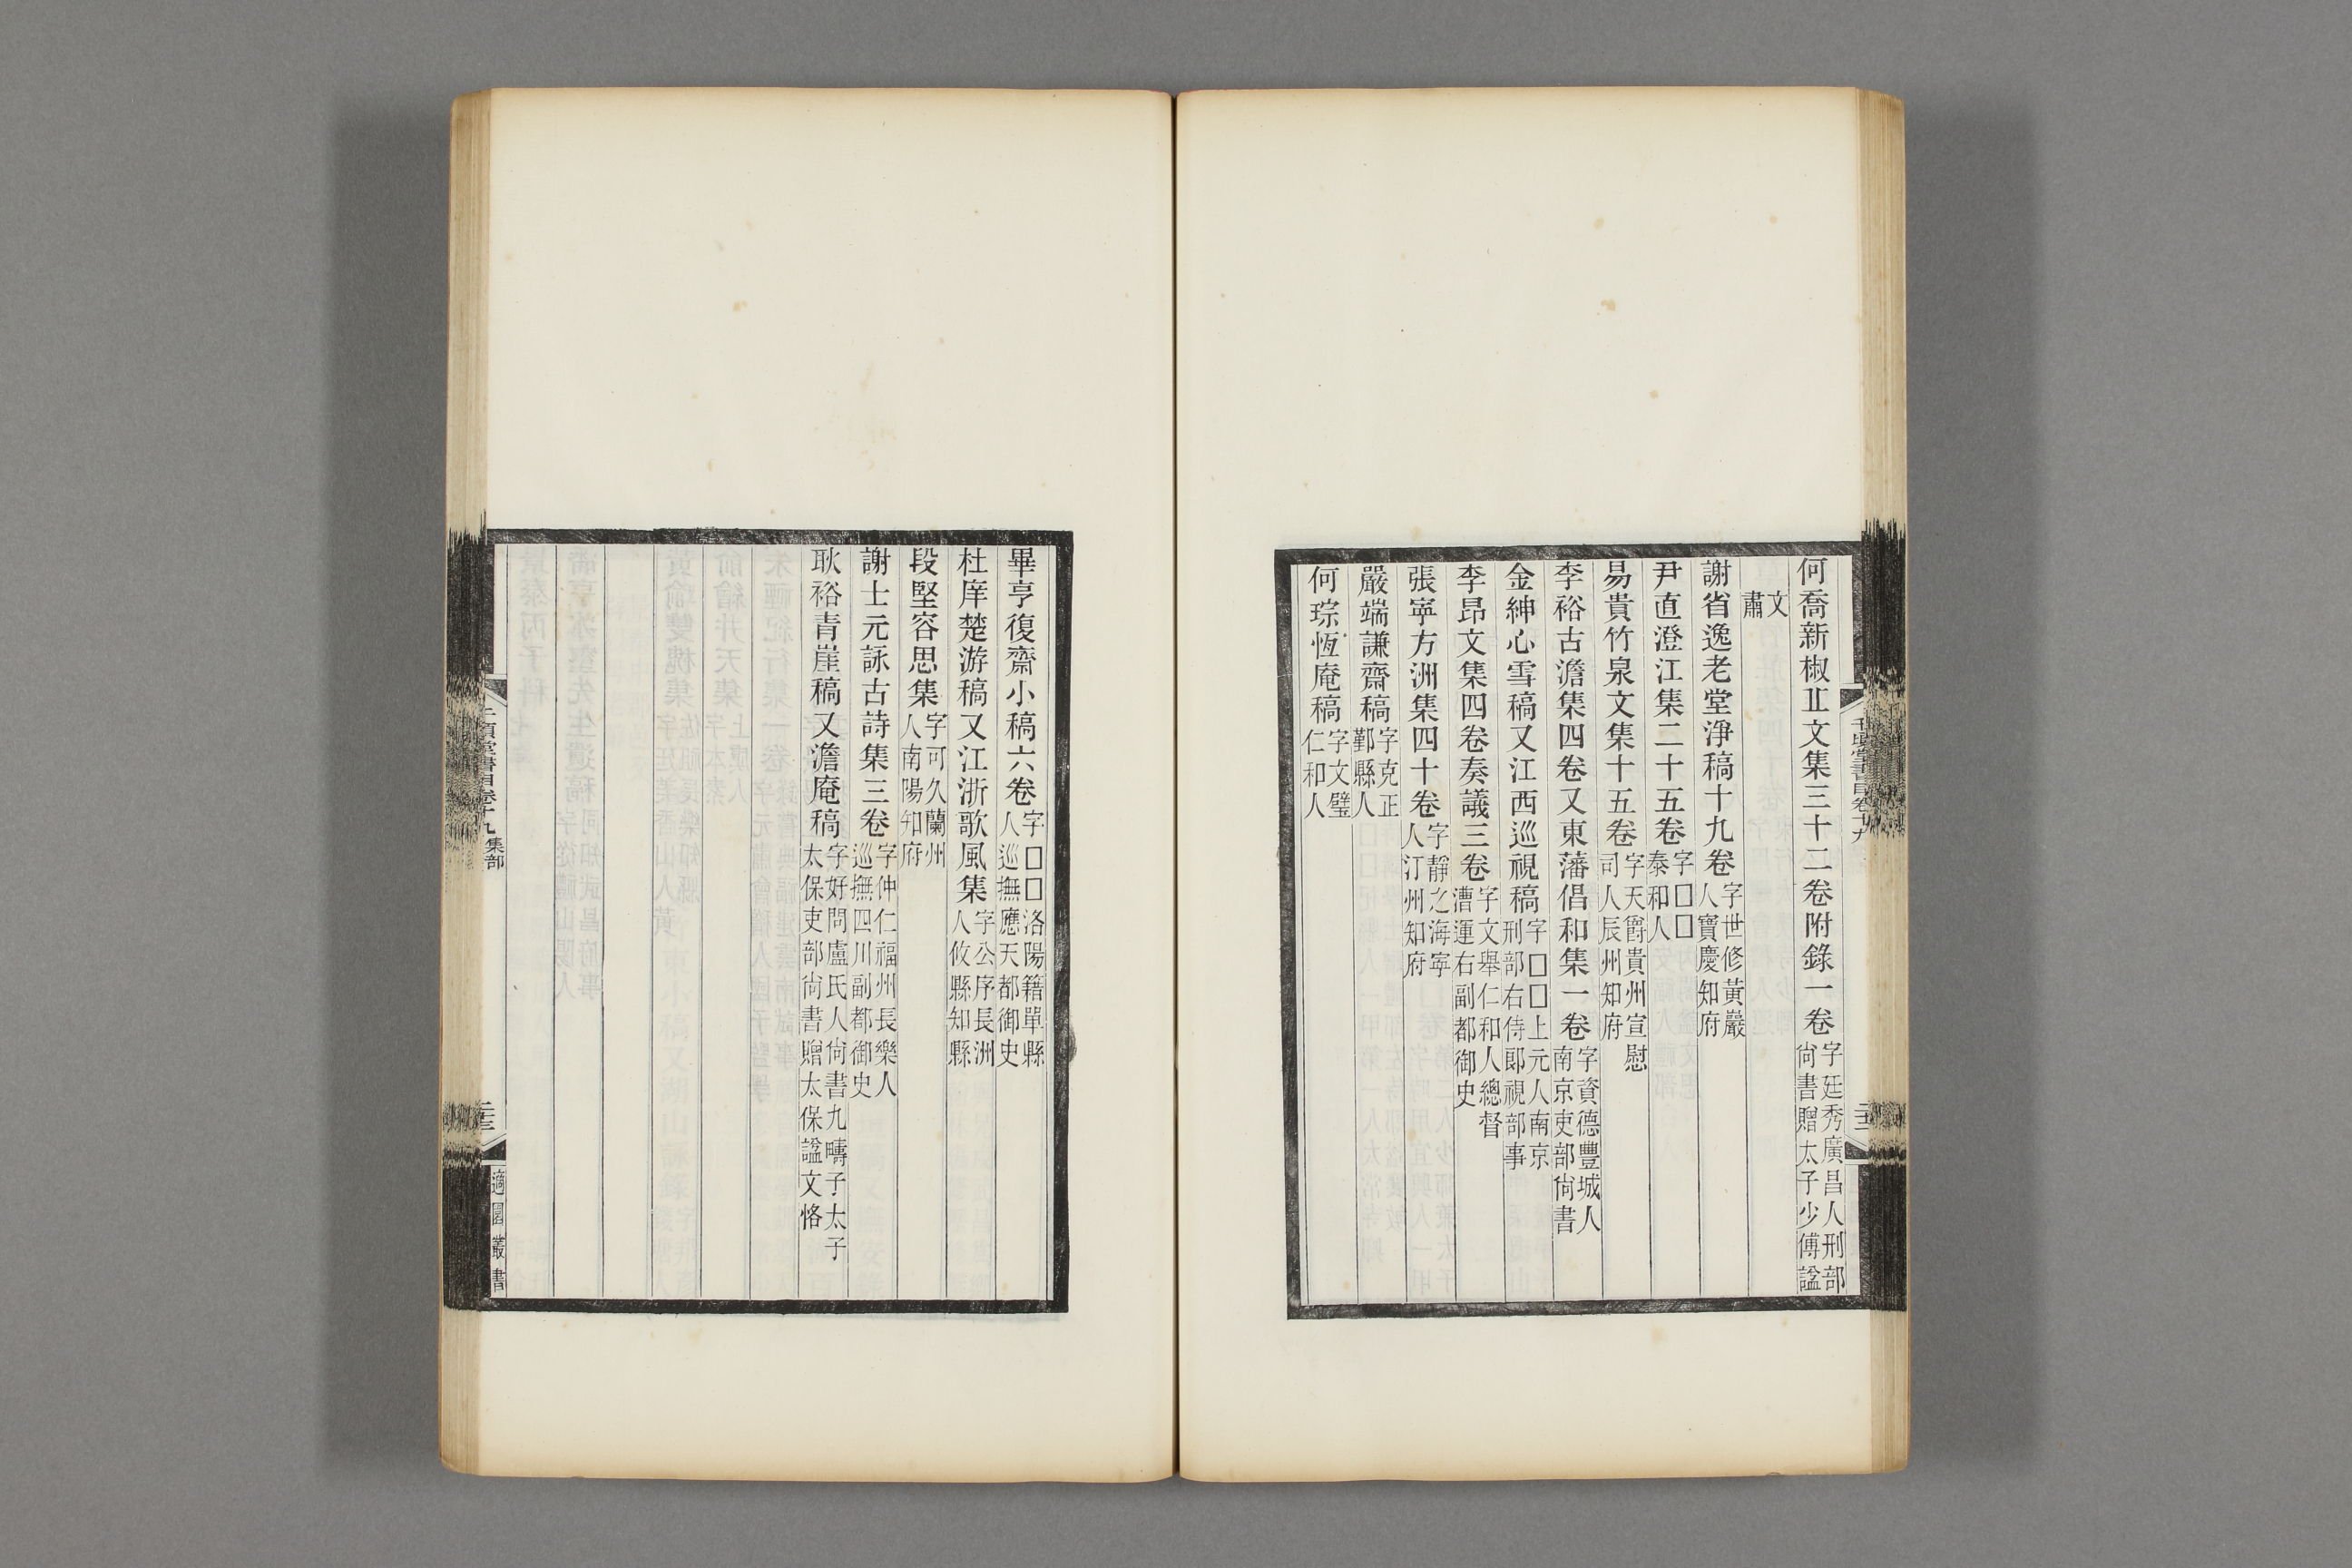 何喬新椒丘文集三十二卷附錄一卷字廷秀廣昌人刑部尙書贈太子少傅諡
文肅
謝省逸老堂淨稿十九卷字世修黃嚴人寶慶知府
尹直澄江集二十五卷字□□泰和人
易貴竹泉文集十五卷字天爵貴州宣慰司人辰州知府
李裕古澹集四卷又東藩倡和集一卷字資德豐城人南京吏部尙書
金紳心雪稿又江西巡視稿字□□上元人南京刑部右侍郞視部事
李昂文集四卷奏議三卷字文舉仁和人總督漕運右副都御史
張寧方洲集四十卷字靜之海寧人汀州知府
嚴端謙齋稿字克正鄞縣人
何琮恆庵稿字文璧仁和人
畢亨復齋小稿六卷字□□洛陽籍單縣人巡撫應天都御史
杜庠楚游稿又江浙歌風集字公序長洲人攸縣知縣
段堅容思集字可久蘭州人南陽知府
謝士元詠古詩集三卷字仲仁福州長樂人巡撫四川副都御史
耿裕靑崖稿又澹庵稿字好問盧氏人尙書九疇子太子太保吏部尙書贈太保諡文恪
千頃堂書目卷十九 集部
二十三
適園叢書